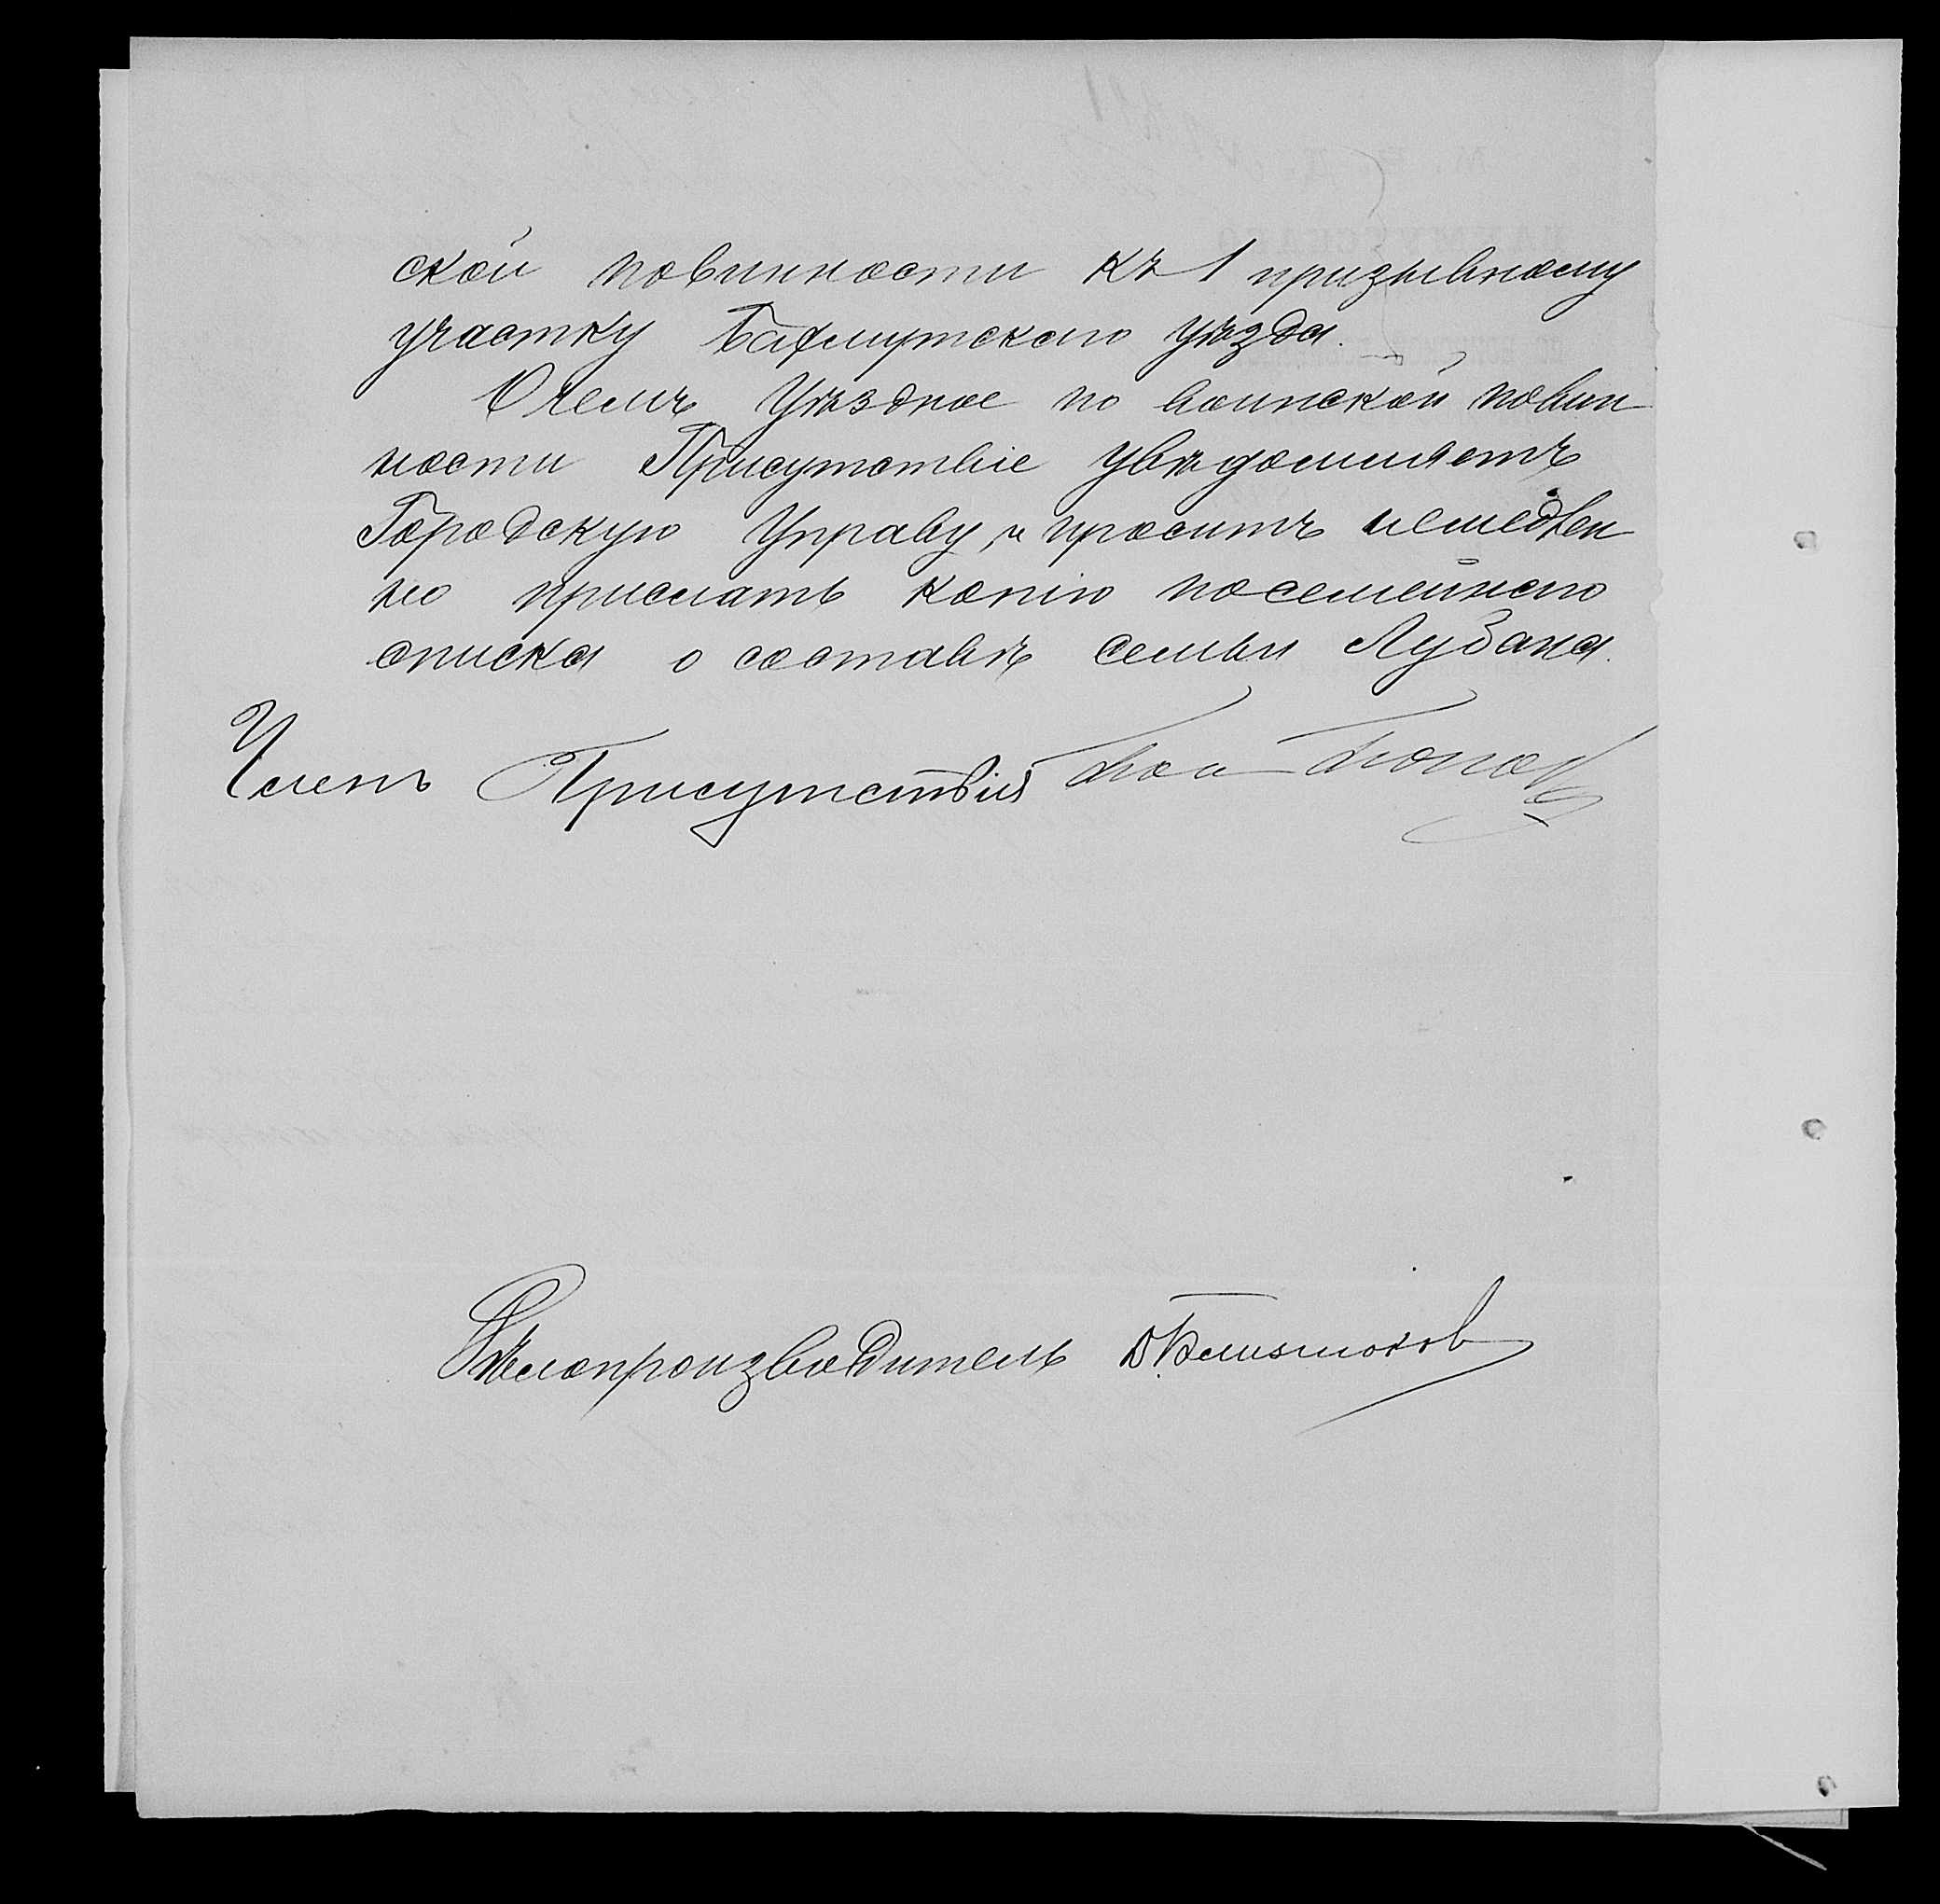 ской повинности къ 1 призывному
участку Бахмутскаго уѣзда.
О чемъ Уѣздное по воинской повин
ности Присутствіе увѣдомляетъ
Городскую Управу, и проситъ немедлен
но прислать копію посемейнаго
списка о составѣ семьи Лубана.
Членъ Присутствія
Дѣлопроизводитель